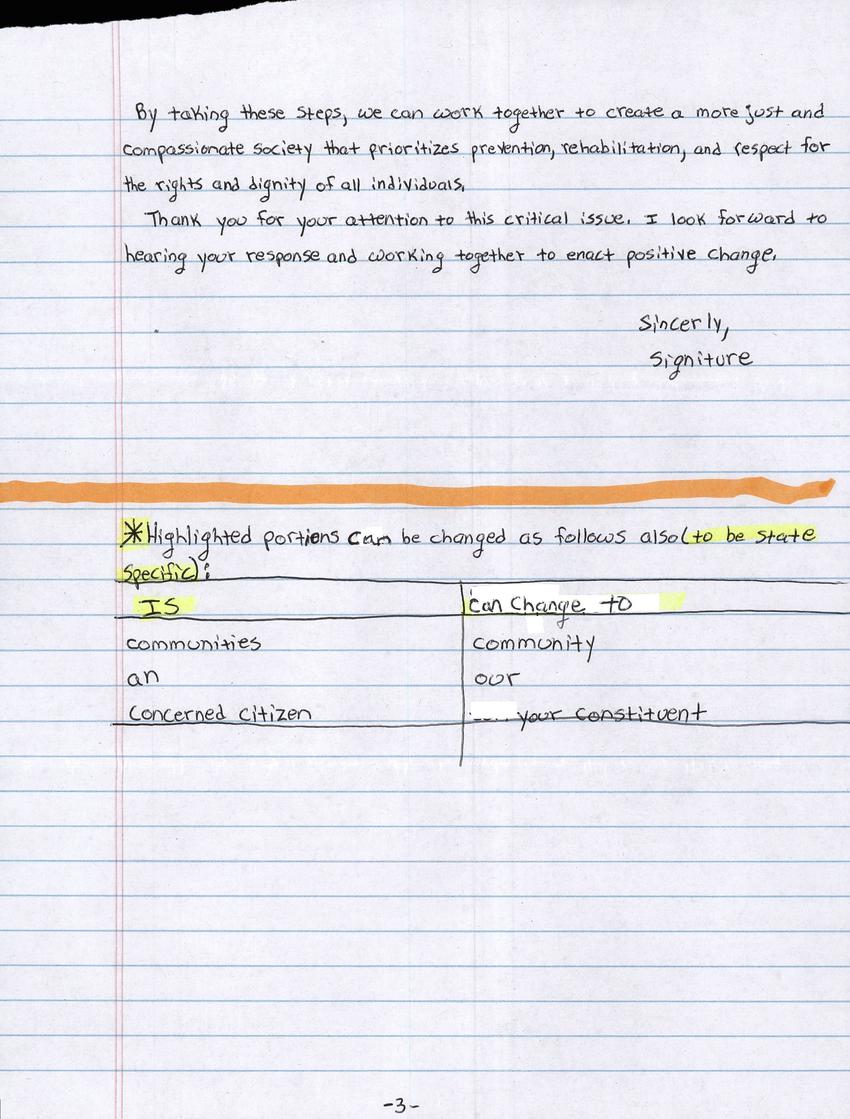 By taking these steps, we can work together to create a more just and
compassionate society that prioritizes prevention, rehabilitation, and respect for
the rights and dignity of all individuals.
Thank you for your attention to this critical issue. I look forward to
hearing your response and working together to enact positive change.
Sincerly,
Signiture
*Highlighted portions can be changed as follows also (to be state
specific):
IS can change to
communities community
an our
Concerned citizen your constituent
-3-